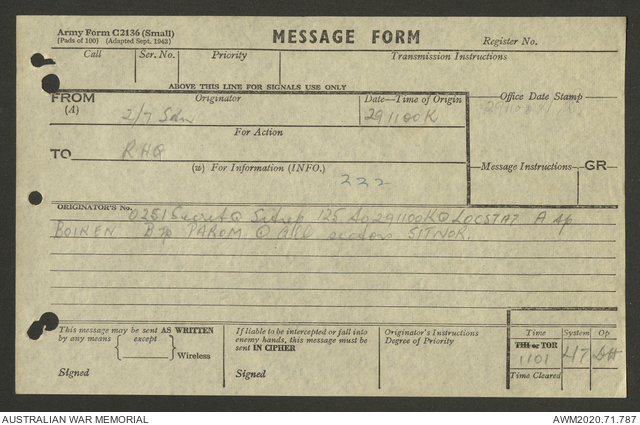 Army Form C2136 (Small)
(Pads of 100) (Adapted Sept. 1943)
MESSAGE FORM
Register No.
Call Ser. No. Priority Transmission Instructions
ABOVE THIS LINE FOR SIGNALS USE ONLY
FROM Originator Date—Time of Origin Office Date Stamp
(A) 2/7 Sqn 291100K
For Action
TO RHQ
(w) For Information (INFO.)
222
Message Instructions GR
ORIGINATOR'S No.
0251 Secret @ Sitrep 125 As 291100K @ LOCSTAT A Tp
BOIKEN B Tp PAROM @ All sectors SITNOR.
This message may be sent AS WRITTEN
by any means except
Wireless
Signed
If liable to be intercepted or fall into
enemy hands, this message must be
sent IN CIPHER
Signed
Originator's Instructions
Degree of Priority
Time System Op
THI or TOR
1101
Time Cleared
AUSTRALIAN WAR MEMORIAL
AWM2020.71.787